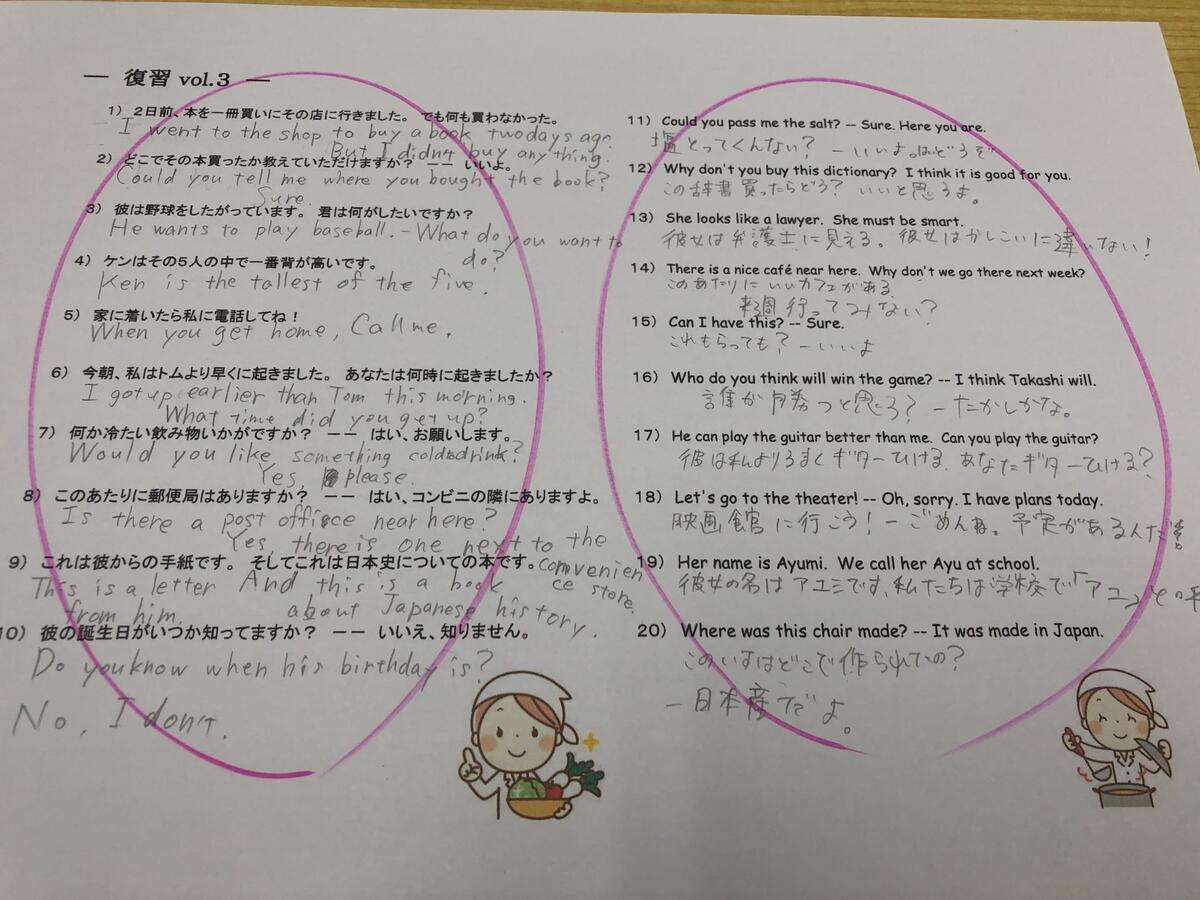 — 復習 vol.3 —
1) 2日前、本を一冊買いにその店に行きました。 でも何も買わなかった。
I went to the shop to buy a book two days ago.
But I didn't buy anything.
2) どこでその本買ったか教えていただけますか? —— いいよ。
Could you tell me where you bought the book?
Sure.
3) 彼は野球をしたがっています。 君は何がしたいですか?
He wants to play baseball. - What do you want to
do?
4) ケンはその5人の中で一番背が高いです。
Ken is the tallest of the five.
5) 家に着いたら私に電話してね!
When you get home, Call me.
6) 今朝、私はトムより早くに起きました。 あなたは何時に起きましたか?
I got up earlier than Tom this morning.
What time did you get up?
7) 何か冷たい飲み物いかがですか? —— はい、お願いします。
Would you like something cold to drink?
Yes, please.
8) このあたりに郵便局はありますか? —— はい、コンビニの隣にありますよ。
Is there a post office near here?
Yes, there is one next to the
convenien
ce store.
9) これは彼からの手紙です。 そしてこれは日本史についての本です。
This is a letter And this is a book
from him. about Japanese history.
10) 彼の誕生日がいつか知ってますか? —— いいえ、知りません。
Do you know when his birthday is?
No, I don't.
11) Could you pass me the salt? -- Sure. Here you are.
塩とってくんない? - いいよ。はいどうぞ
12) Why don't you buy this dictionary? I think it is good for you.
この辞書買ったらどう? いいと思うよ。
13) She looks like a lawyer. She must be smart.
彼女は弁護士に見える。彼女はかしこいに違いない!
14) There is a nice café near here. Why don't we go there next week?
このあたりにいいカフェがある。
来週行ってみない?
15) Can I have this? -- Sure.
これもらっても? - いいよ
16) Who do you think will win the game? -- I think Takashi will.
誰が勝つと思う? - たかしかな。
17) He can play the guitar better than me. Can you play the guitar?
彼は私よりうまくギターひける。あなたギターひける?
18) Let's go to the theater! -- Oh, sorry. I have plans today.
映画館に行こう! - ごめんね。予定があるんだ
19) Her name is Ayumi. We call her Ayu at school.
彼女の名はアユミです、私たちは学校で「アユ」と呼
20) Where was this chair made? -- It was made in Japan.
このいすはどこで作られたの?
- 日本産でよ。